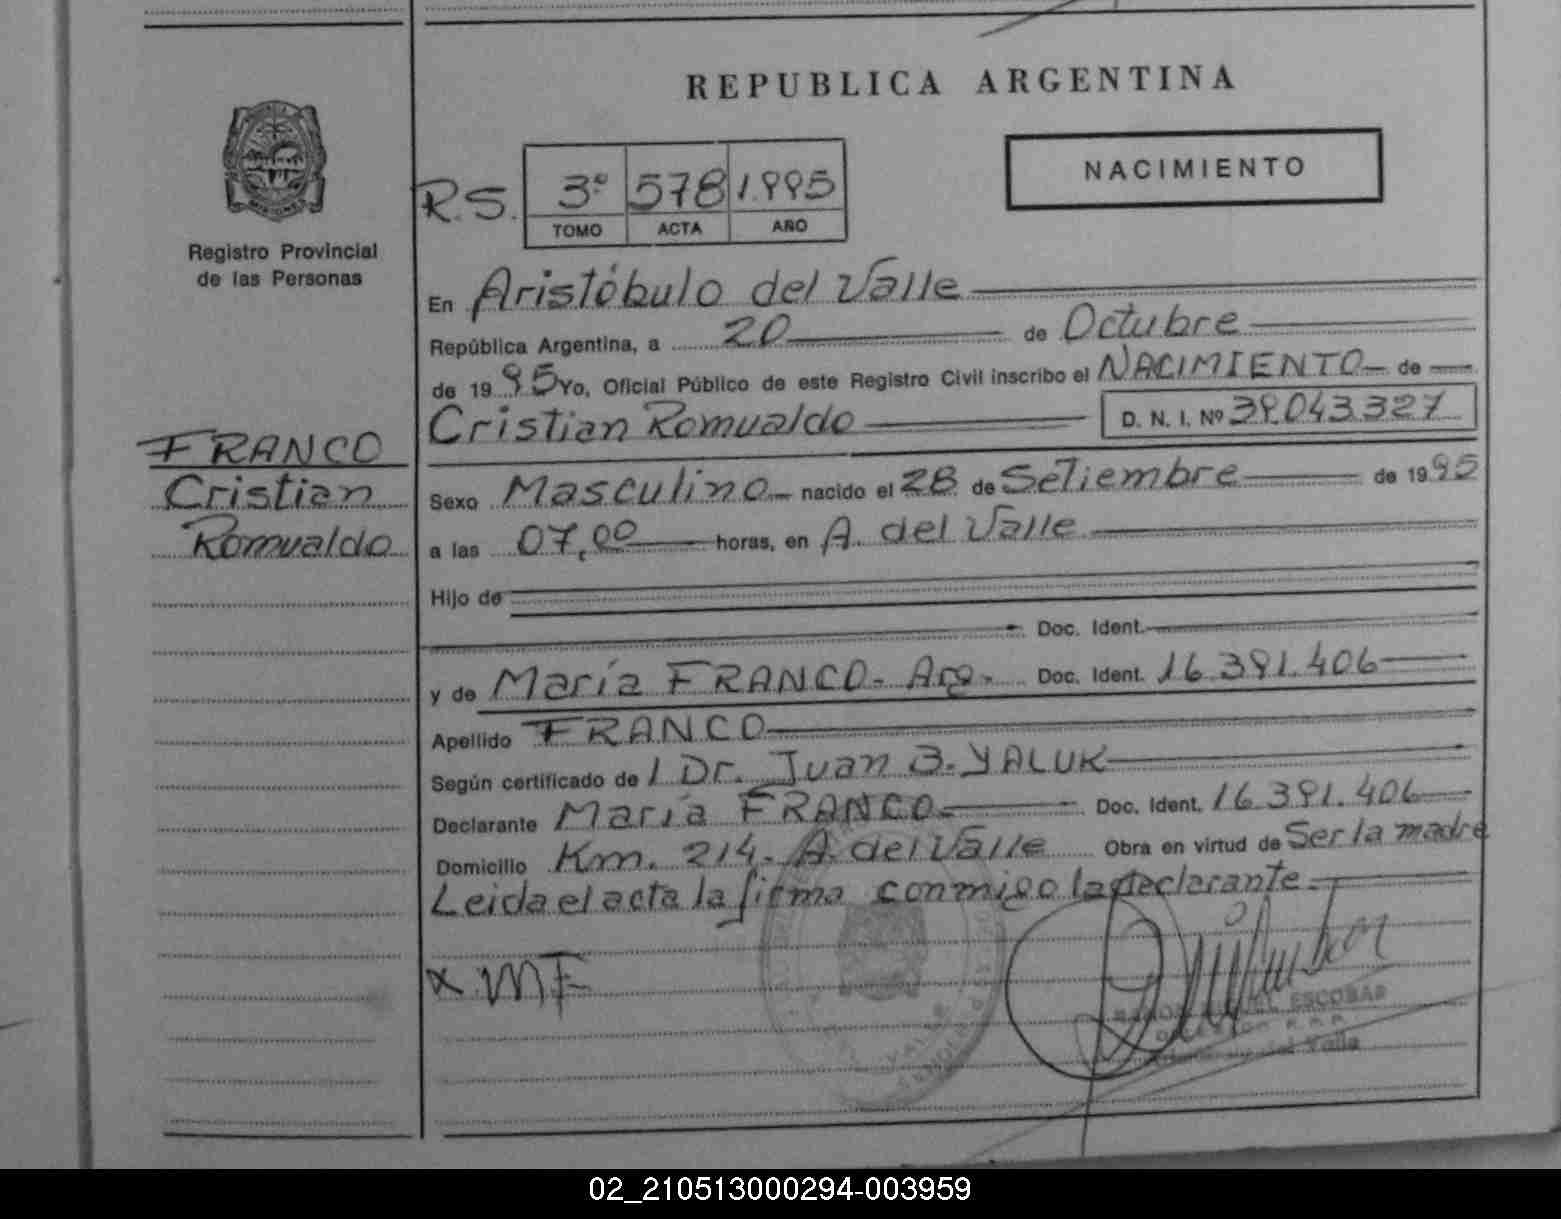 REPUBLICA ARGENTINA
NACIMIENTO
R.S. 3º 578 1.995
TOMO ACTA AÑO
Registro Provincial
de las Personas
FRANCO
Cristian
Romualdo
En Aristóbulo del Valle
República Argentina, a 20 de Octubre
de 1995 Yo, Oficial Público de este Registro Civil inscribo el NACIMIENTO de
Cristian Romualdo D. N. I. Nº 39.043.327
Sexo Masculino nacido el 28 de Setiembre de 1995
a las 07,00 horas, en A. del Valle
Hijo de
Doc. Ident.
y de María FRANCO- Arg- Doc. Ident. 16.391.406
Apellido FRANCO
Según certificado de l Dr. Juan B. YALUK
Declarante María FRANCO Doc. Ident. 16.391.406
Domicilio Km. 214- A. del Valle Obra en virtud de Ser la madre
Leida el acta la firma conmigo la declarante
x MF
ESCOBAR
Valle
02_210513000294-003959